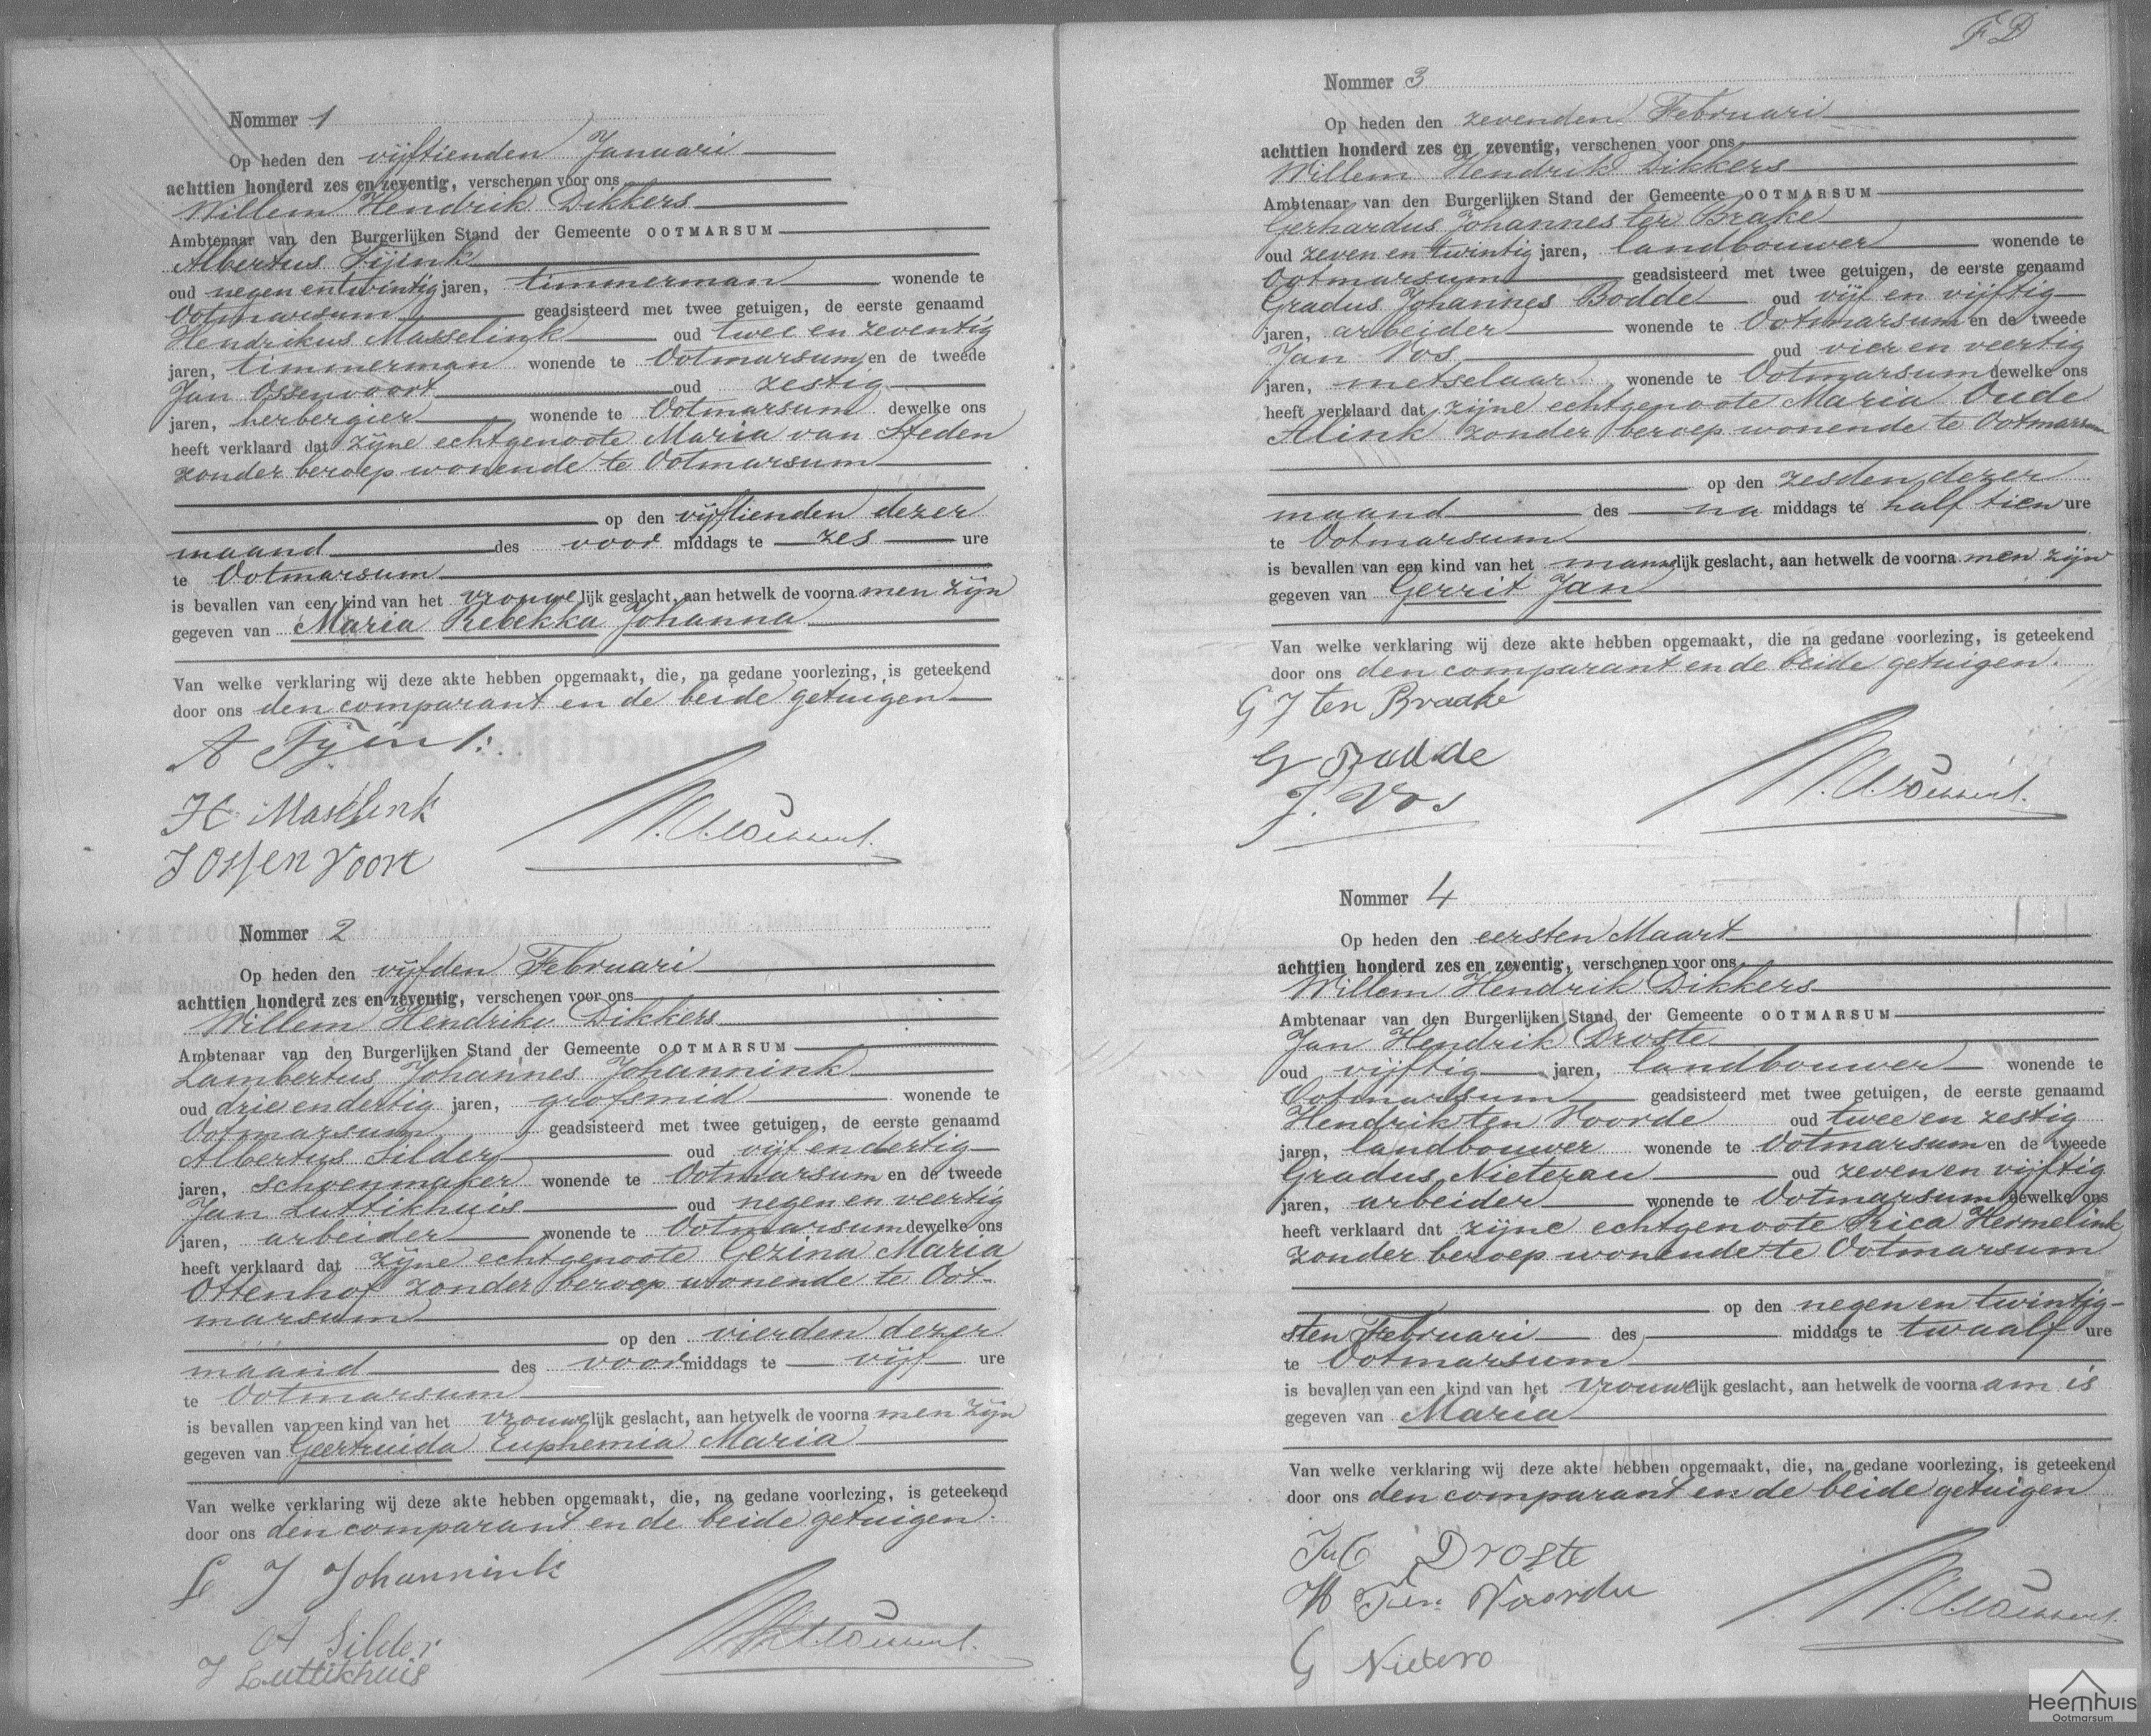 Nommer 1
Op heden den vijftienden Januari
achttien honderd zes en zeventig, verschenen voor ons
Willem Hendrik Dikkers
Ambtenaar van den Burgerlijken Stand der Gemeente OOTMARSUM
Albertus Tijink
oud negen en twintig jaren, timmerman wonende te
Ootmarsum geadsisteerd met twee getuigen, de eerste genaamd
Hendrikus Masselink oud twee en zeventig
jaren, timmerman wonende te Ootmarsum en de tweede
Jan Ossenvoort oud zestig
jaren, herbergier wonende te Ootmarsum dewelke ons
heeft verklaard dat zijne echtgenoote Maria van Steden
zonder beroep wonende te Ootmarsum
op den vijftienden dezer
maand des voor middags te zes ure
te Ootmarsum
is bevallen van een kind van het vrouwelijk geslacht, aan hetwelk de voornamen zijn
gegeven van Maria Rebekka Johanna
Van welke verklaring wij deze akte hebben opgemaakt, die, na gedane voorlezing, is geteekend
door ons den comparant en de beide getuigen
A Tijink
H. Masselink
J Ossenvoort
Nommer 2
Op heden den vijfden Februari
achttien honderd zes en zeventig, verschenen voor ons
Willem Hendrik Dikkers
Ambtenaar van den Burgerlijken Stand der Gemeente OOTMARSUM
Lambertus Johannes Johannink
oud drie en dertig jaren, grofsmid wonende te
Ootmarsum geadsisteerd met twee getuigen, de eerste genaamd
Albertus Silder oud vijf en dertig
jaren, schoenmaker wonende te Ootmarsum en de tweede
Jan Luttikhuis oud negen en veertig
jaren, arbeider wonende te Ootmarsum dewelke ons
heeft verklaard dat zijne echtgenoote Gezina Maria
Ottenhof zonder beroep wonende te Oot-
marsum
op den vierden dezer
maand des voor middags te vijf ure
te Ootmarsum
is bevallen van een kind van het vrouwelijk geslacht, aan hetwelk de voornamen zijn
gegeven van Geertruida Euphemia Maria
Van welke verklaring wij deze akte hebben opgemaakt, die, na gedane voorlezing, is geteekend
door ons den comparant en de beide getuigen.
L J Johannink
A Silder
J Luttikhuis
FD
Nommer 3
Op heden den zevenden Februari
achttien honderd zes en zeventig, verschenen voor ons
Willem Hendrik Dikkers
Ambtenaar van den Burgerlijken Stand der Gemeente OOTMARSUM
Gerhardus Johannes ter Brake
oud zeven en twintig jaren, landbouwer wonende te
Ootmarsum geadsisteerd met twee getuigen, de eerste genaamd
Gradus Johannes Bodde oud vijf en vijftig
jaren, arbeider wonende te Ootmarsum en de tweede
Jan Vos oud vier en veertig
jaren, metselaar wonende te Ootmarsum dewelke ons
heeft verklaard dat zijne echtgenoote Maria Oude
Alink zonder beroep wonende te Ootmarsum
op den zesden dezer
maand des na middags te half tien ure
te Ootmarsum
is bevallen van een kind van het mannelijk geslacht, aan hetwelk de voornamen zijn
gegeven van Gerrit Jan
Van welke verklaring wij deze akte hebben opgemaakt, die na gedane voorlezing, is geteekend
door ons den comparant en de beide getuigen.
G J ten Braake
G Bodde
J. Vos
Nommer 4
Op heden den eersten Maart
achttien honderd zes en zeventig, verschenen voor ons
Willem Hendrik Dikkers
Ambtenaar van den Burgerlijken Stand der Gemeente OOTMARSUM
Jan Hendrik Droste
oud vijftig jaren, landbouwer wonende te
Ootmarsum geadsisteerd met twee getuigen, de eerste genaamd
Hendrik ten Voorde oud twee en zestig
jaren, landbouwer wonende te Ootmarsum en de tweede
Gradus Nieterau oud zeven en vijftig
jaren, arbeider wonende te Ootmarsum dewelke ons
heeft verklaard dat zijne echtgenoote Rica Hermelink
zonder beroep wonende te Ootmarsum
op den negen en twintig-
sten Februari des middags te twaalf ure
te Ootmarsum
is bevallen van een kind van het vrouwelijk geslacht, aan hetwelk de voornaam is
gegeven van Maria
Van welke verklaring wij deze akte hebben opgemaakt, die, na gedane voorlezing, is geteekend
door ons den comparant en de beide getuigen
Droste
H Ten Voorde
G Nietero
Heemhuis
Ootmarsum